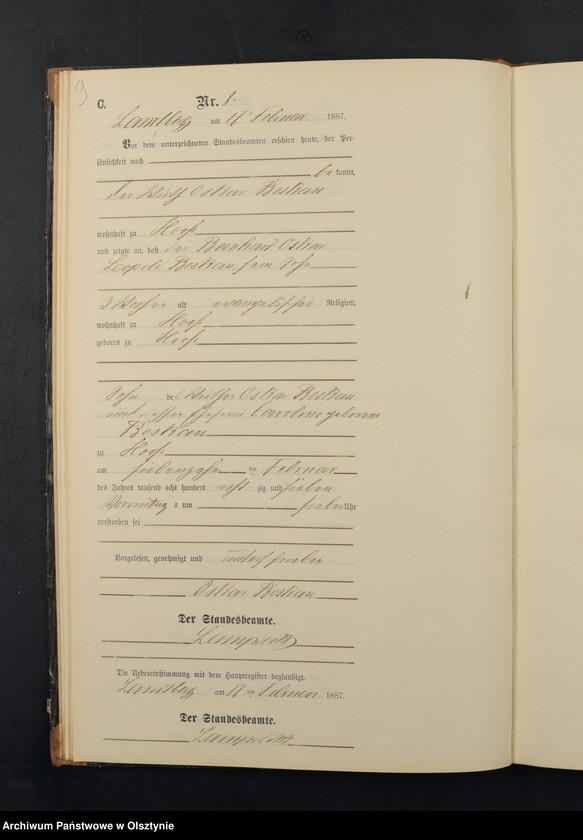 9
C.
Nr. 8.
am 17 Februar 1887.
Vor dem unterzeichneten Standesbeamten erschien heute, der Per-
sönlichkeit nach
be kannt,
der Wirth Oskar
wohnhaft zu
und zeigte an, daß der Bernhard Oskar
Leopold sein Sohn
3 Wochen alt evangelischer Religion,
wohnhaft zu
geboren zu
Sohn des Wirths Oskar
und dessen Ehefrau Caroline geborenen
zu
am siebenzehn ten Februar
des Jahres tausend acht hundert acht zig und sieben
Vormittag s um sieben Uhr
verstorben sei
Vorgelesen, genehmigt und unterschrieben
Oskar
Der Standesbeamte.
Die Uebereinstimmung mit dem Hauptregister beglaubigt.
am 17 ten Februar 1887.
Der Standesbeamte.
Archiwum Państwowe w Olsztynie